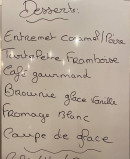 Desserts:
Entremet caramel/Poire
Tartelette Framboise
Café gourmand
Brownie glace Vanille
Fromage Blanc
Coupe de glace